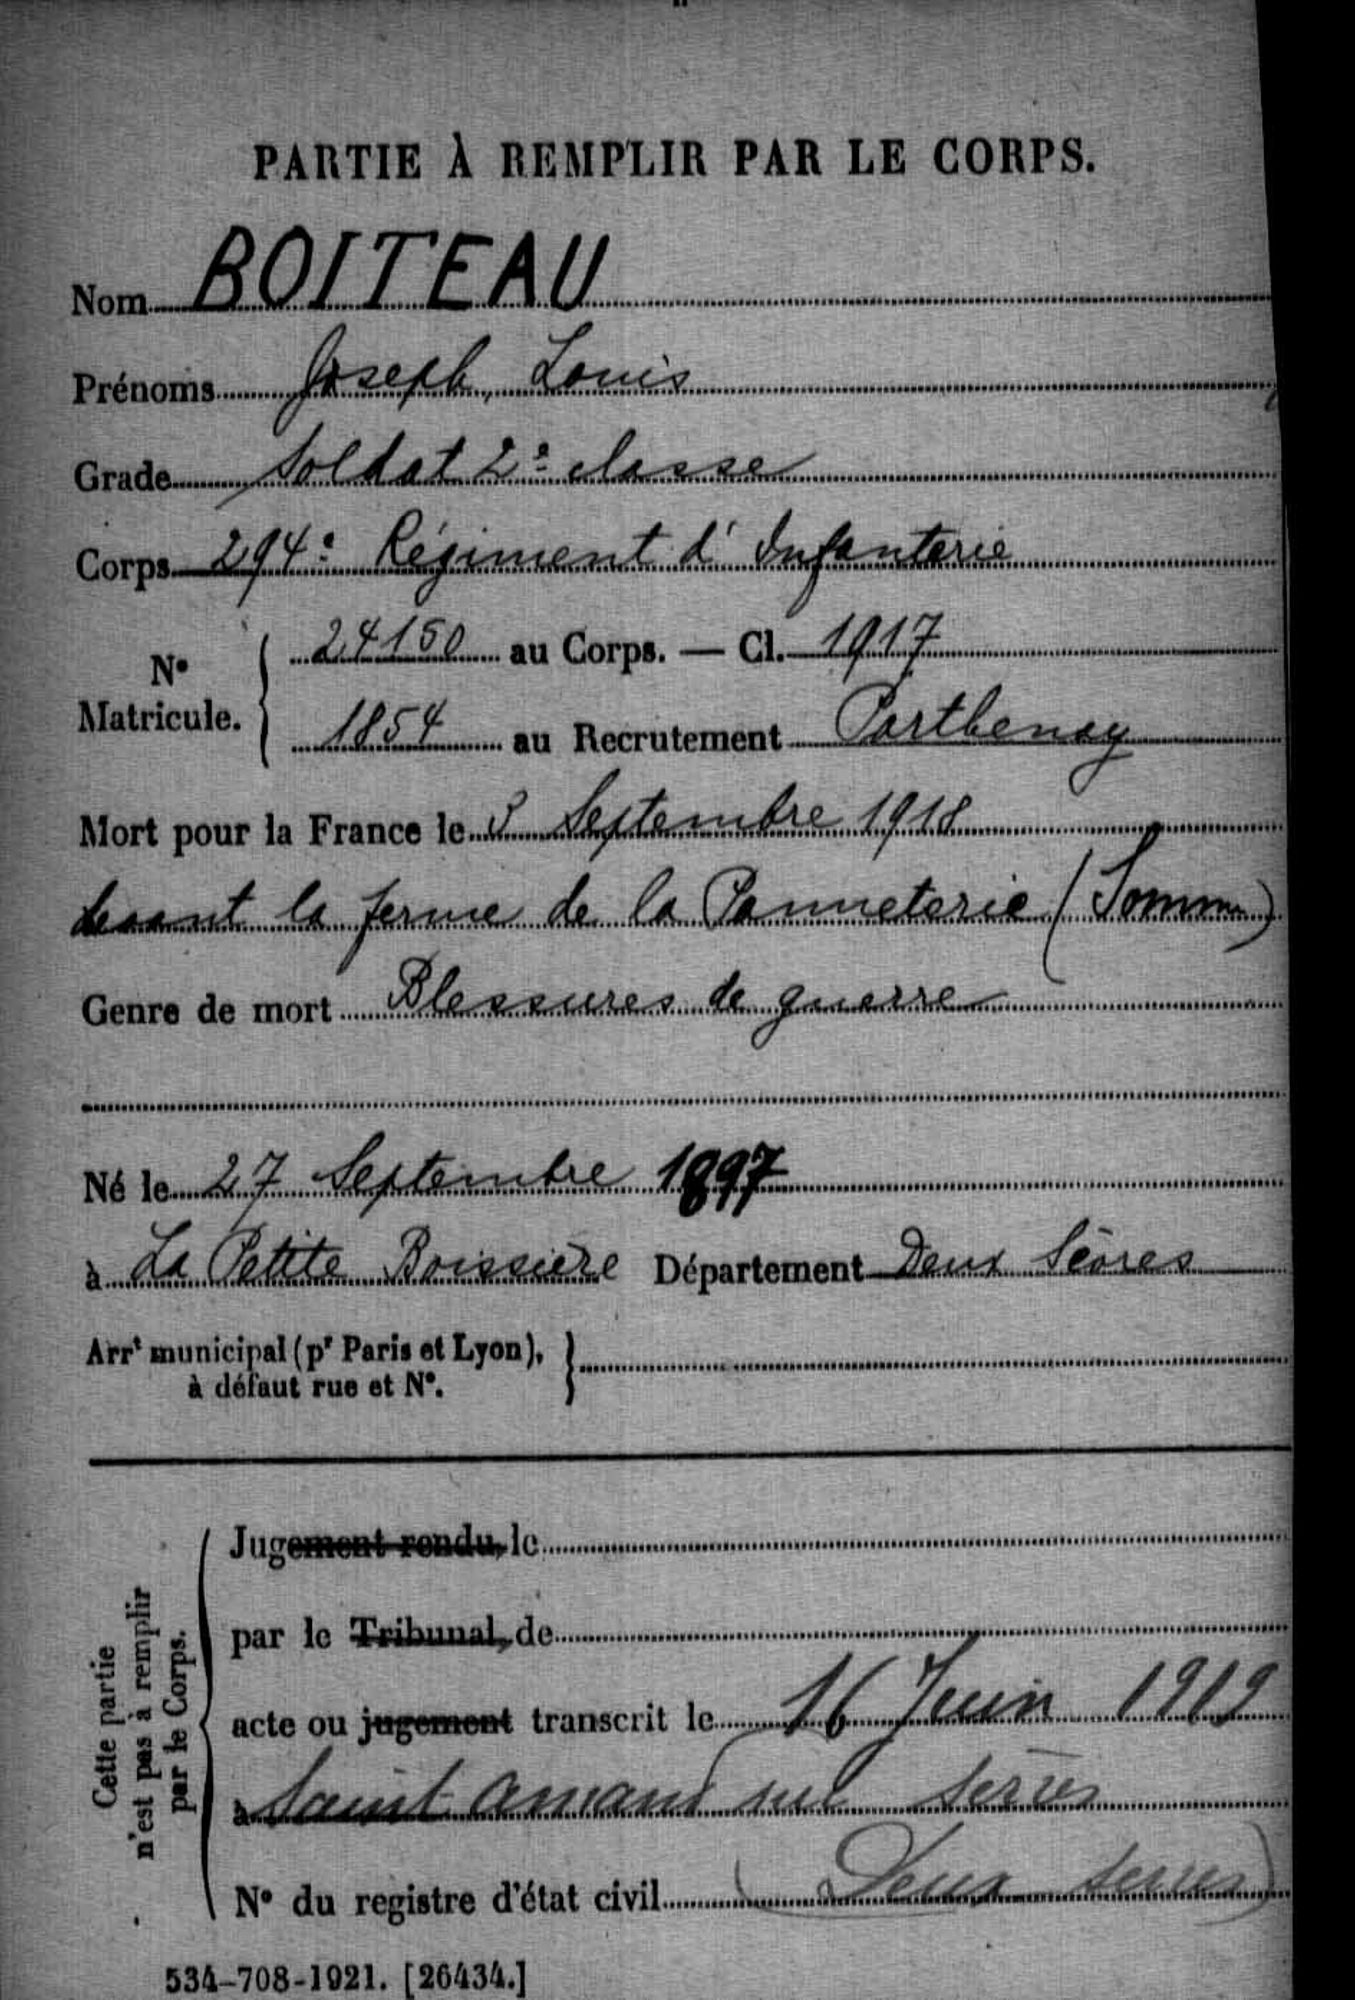 PARTIE À REMPLIR PAR LE CORPS.
Nom BOITEAU
Prénoms Joseph, Louis
Grade Soldat 2e classe
Corps 294e Régiment d'Infanterie
N° Matricule. 24150 au Corps. — Cl. 1917
1854 au Recrutement Parthenay
Mort pour la France le Septembre 1918
devant la ferme de la Panneterie (Somme)
Genre de mort Blessures de guerre
Né le 27 Septembre 1897
à La Petite Boissière Département Deux Sèvres
Arrt municipal (pr Paris et Lyon),
à défaut rue et N°.
Cette partie
n'est pas à remplir
par le Corps.
Jugement rendu, le
par le Tribunal, de
acte ou jugement transcrit le 16 Juin 1919
à Saint Amand sur Sèvres
N° du registre d'état civil (Deux Sevres)
534-708-1921. [26434.]